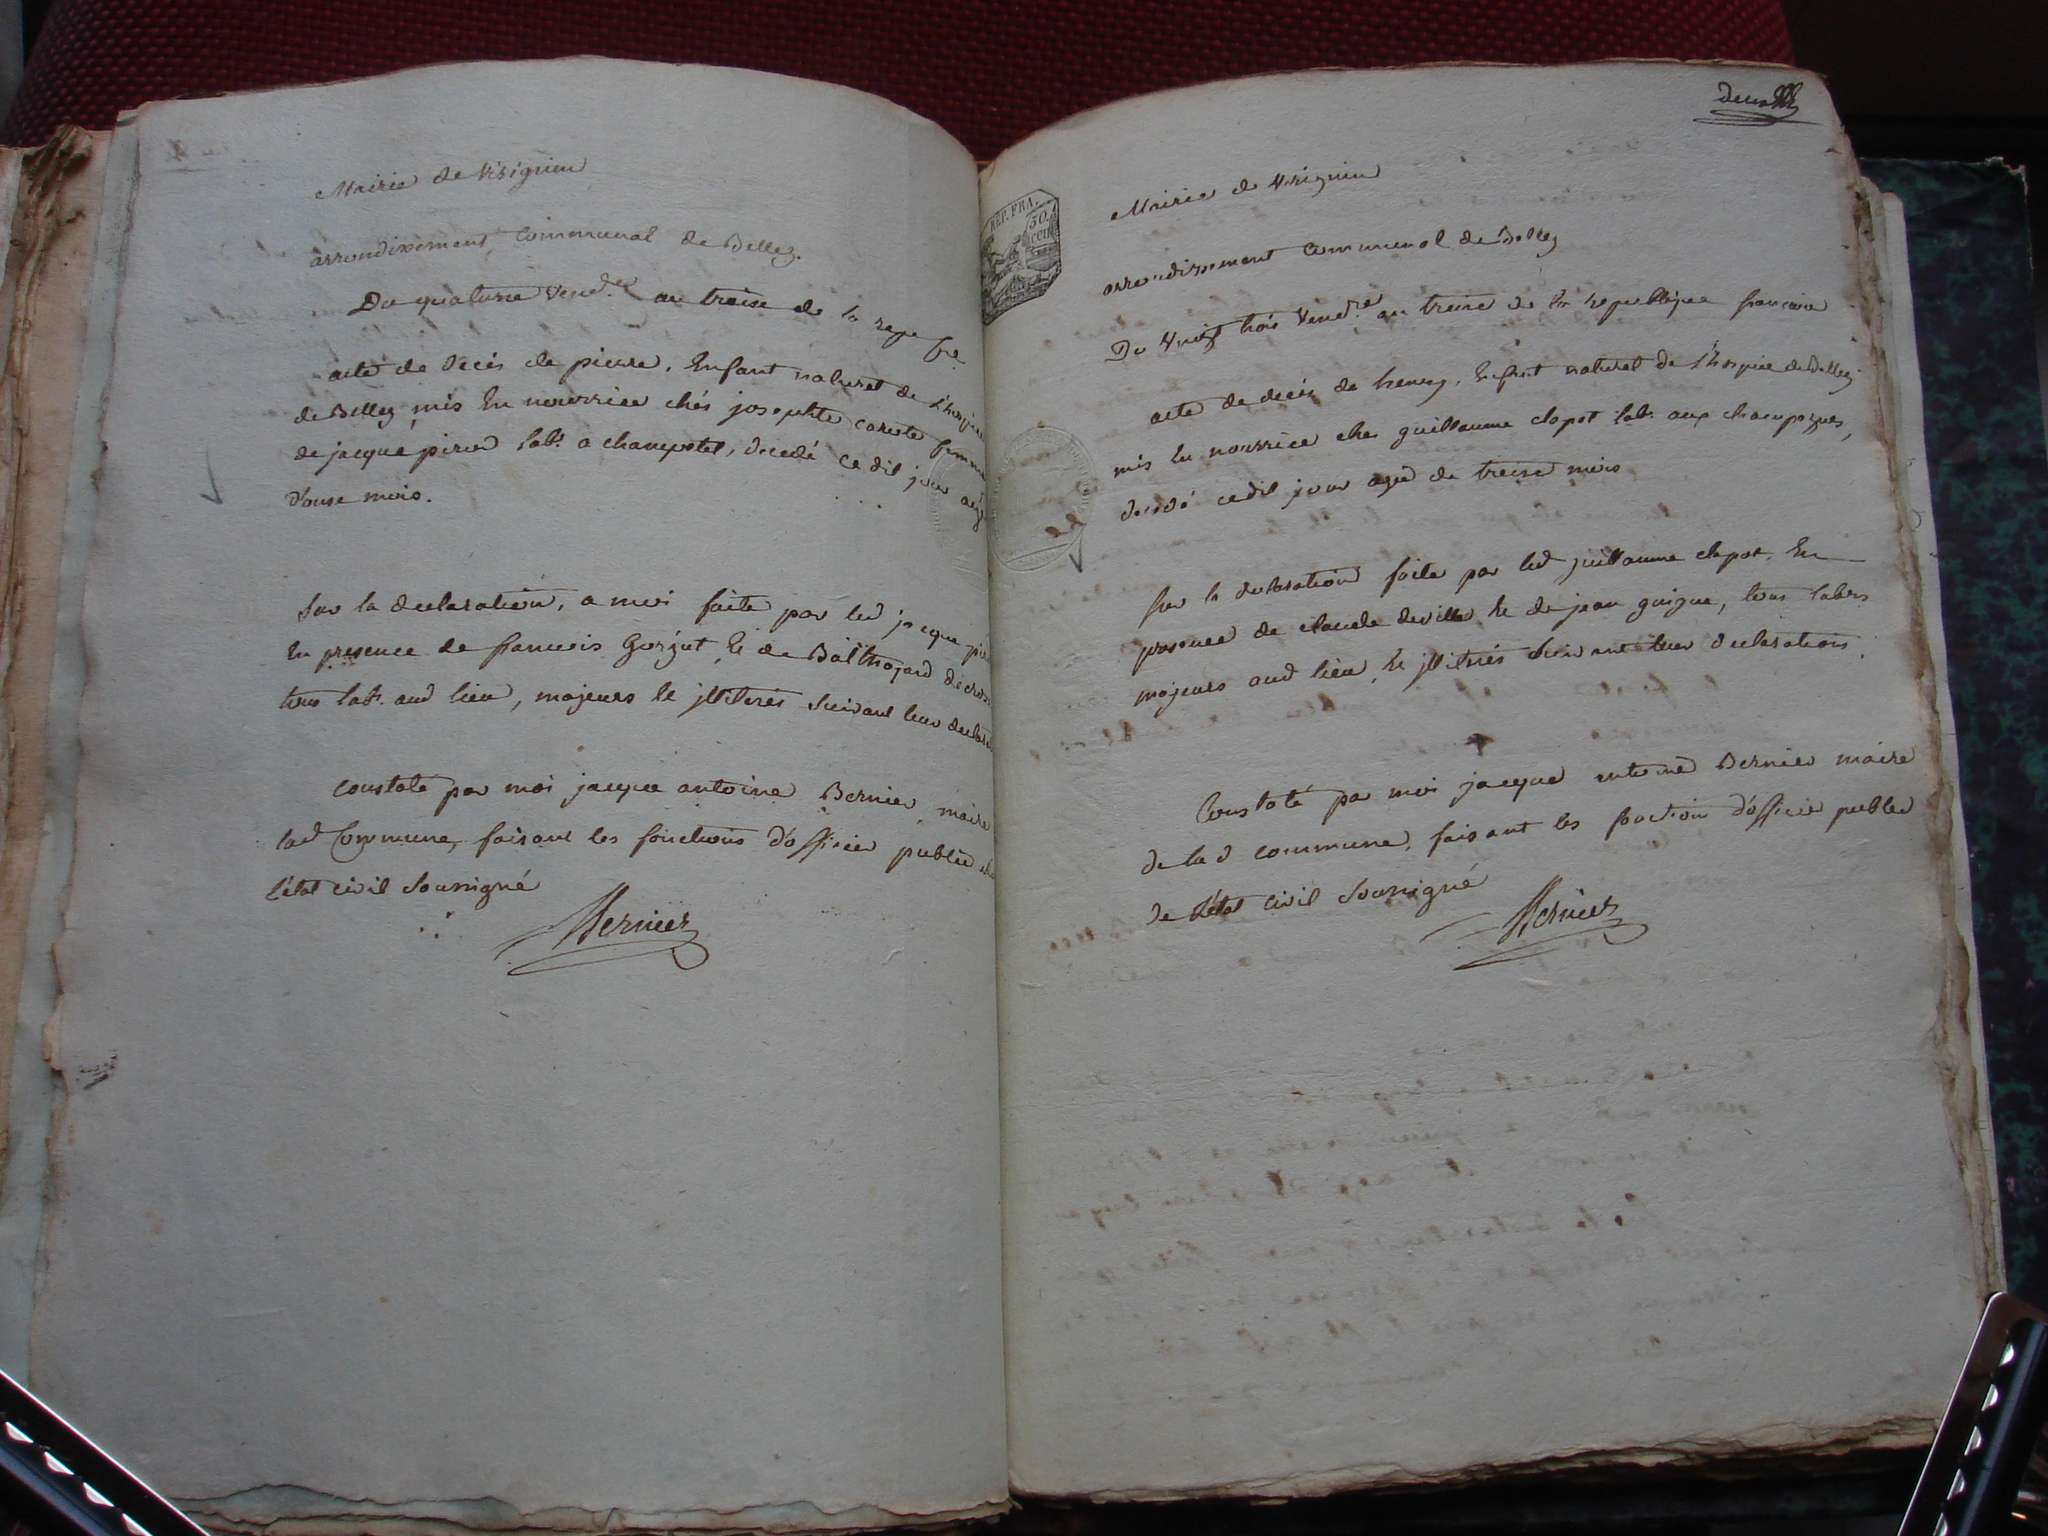 Mairie de Virignin
arrondissement Communal de Belley.
Du quatorze Vend.re an treize de la repe fse
acte de decés de pierre, Enfant naturel de L'hospice
de Belley mis En nourrice chés josephte femme
de jacque pived lab.r a champstel, decedé ce dit jour agé
d'onze mois.
Sur la declaration, a moi faite par led jacque
En presence de francois Gorjut, Et de Balthazard
tous lab.r aud lieu, majeurs Et jllitérés suivant leur
Constaté par moi jacque antoine Bernier, maire
lad Commune, faisant les fonctions d'officier public
l'état civil soussigné
Bernier
deux
REP. FRA.
50. cen
Mairie de Virignin
arrondissement Communal de Belley
Du vingt trois Vend.re an treize de la republique francaise
acte de decés de henry, Enfant naturel de L'hospice de Belley
mis En nourrice ches guillaume clapot lab.r aux champagnes,
decedé cedit jour agé de treize mois
sur la declaration faite par led guillaume clapot, En
presence de claude deville Et de jean guigue, tous labrs
majeurs aud lieu, Et jllitérés suivant leur declaration.
Constaté par moi jacque antoine Bernier maire
de lad commune, faisant les fonction d'officier public
de l'état civil soussigné
Bernier